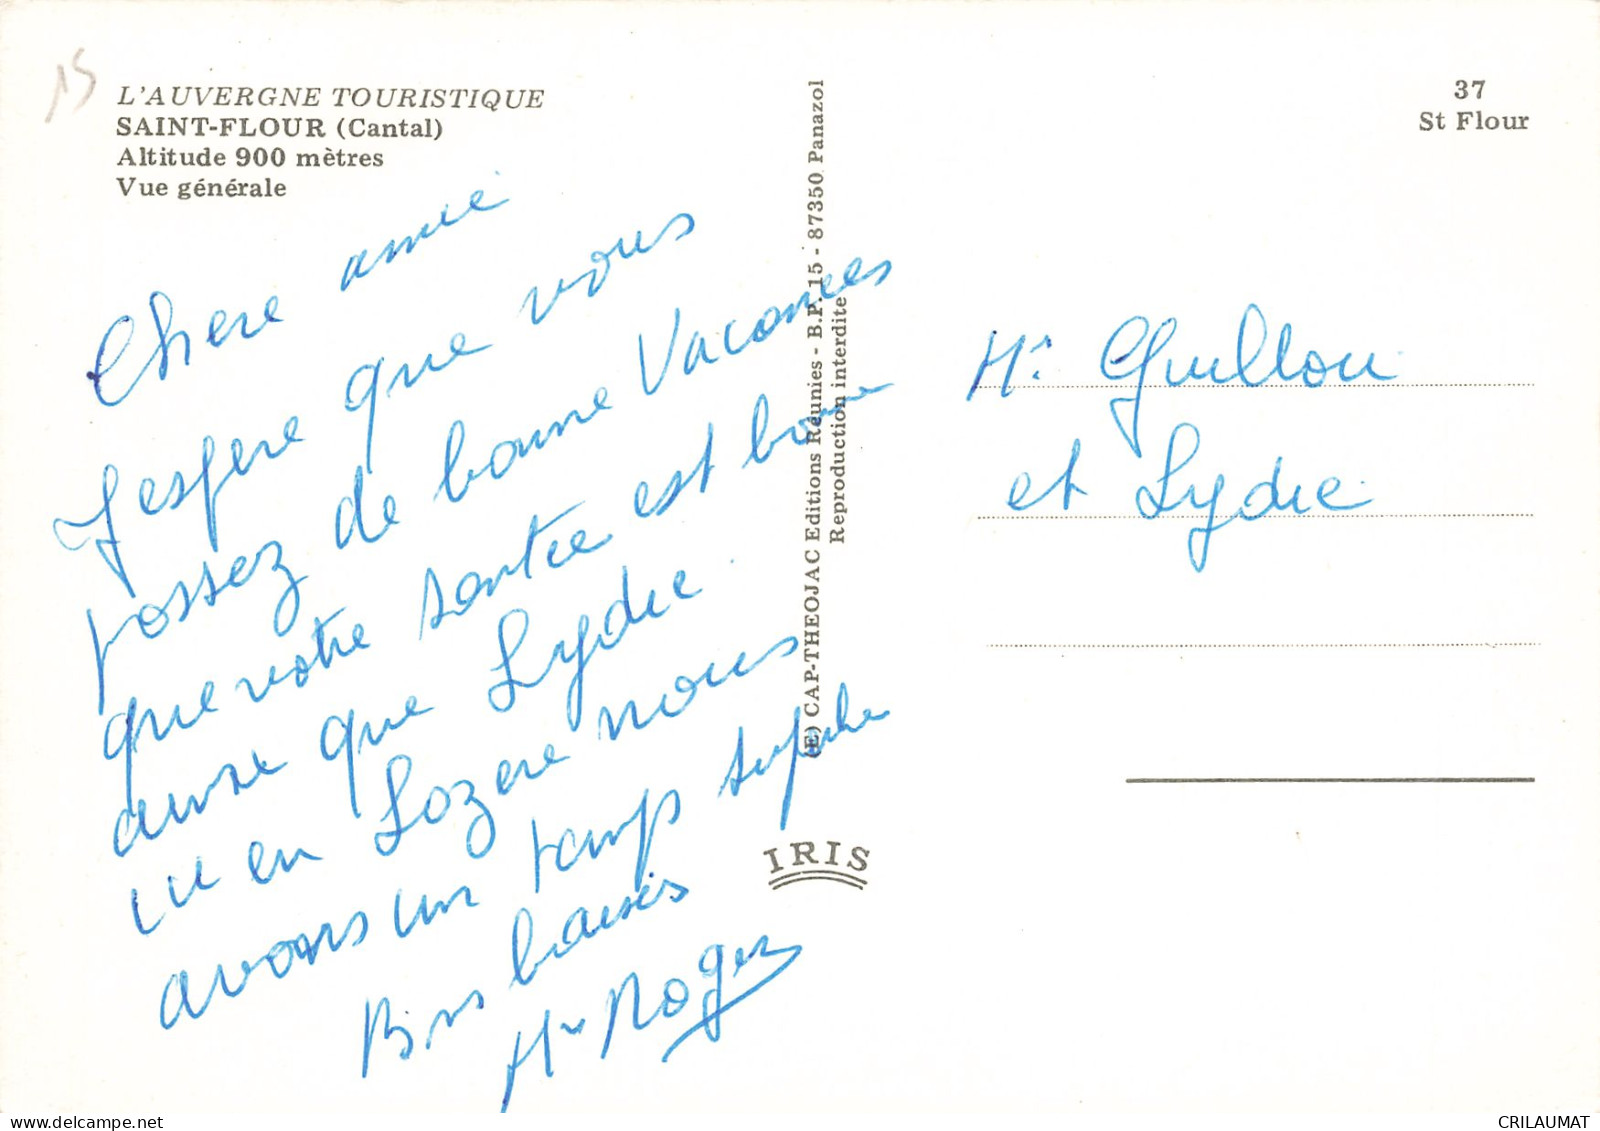 15
L'AUVERGNE TOURISTIQUE
SAINT-FLOUR (Cantal)
Altitude 900 mètres
Vue générale
Chere amie
J espere que vous
possez de bonne Vacances
que votre santée est bone
ausse que Lydie.
ici en Lozere nous
avons un temps superbe
Bons baisés
Roger
(E) CAP-THEOJAC Editions Réunies - B.P. 15 - 87350 Panazol
Reproduction interdite
IRIS
37
St Flour
Guillou
et Lydie
CRILAUMAT